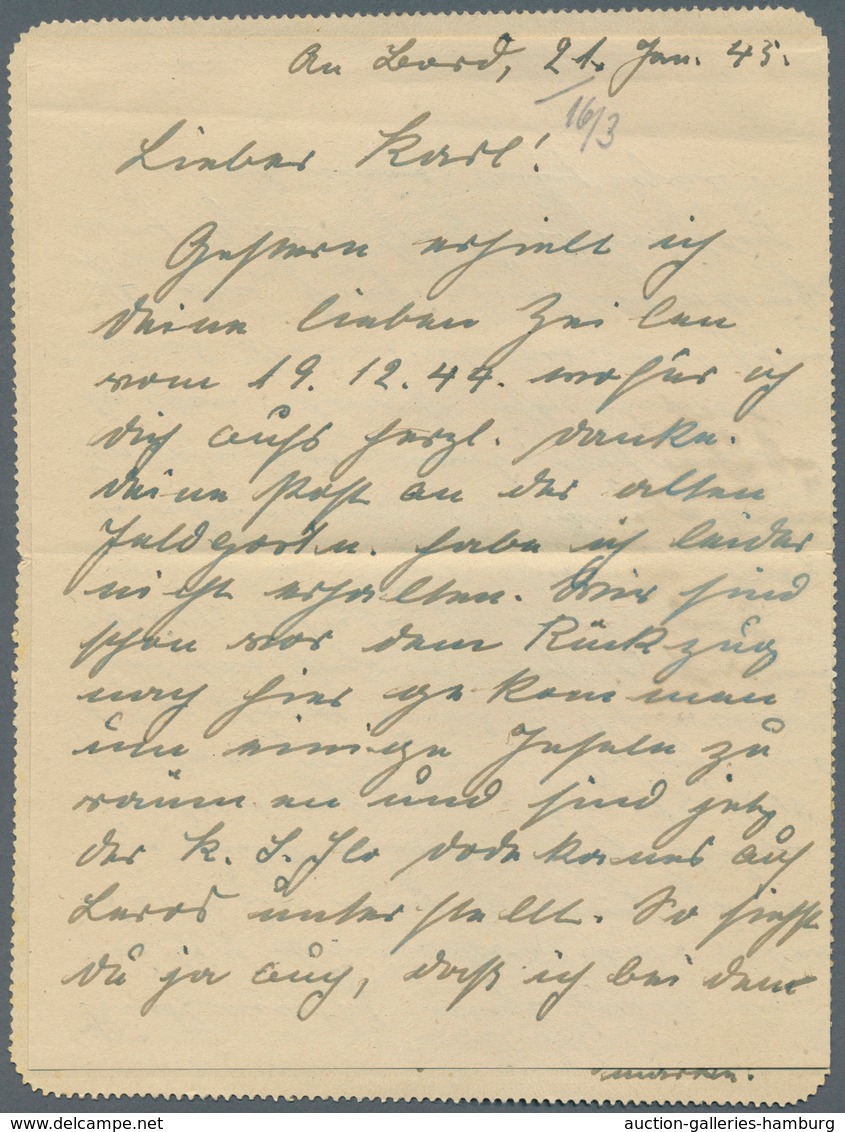 An Bord, 21. Jan. 45.
16/3
Lieber Karl!
Gestern erhielt ich
deine lieben Zeilen
vom 19. 12. 44. wofür ich
dich aufs herzl. danke.
Deine Post an der alten
Feldpostn. habe ich leider
nicht erhalten. Wir sind
schon vor dem Rückzug
nach hier gekommen
um einige Inseln zu
räumen und sind jetz
der K. S. Flo Dodekanes auf
Leros unterstellt. So siehst
du ja auch, daß ich bei dem
marken.
auction-galleries-hamburg